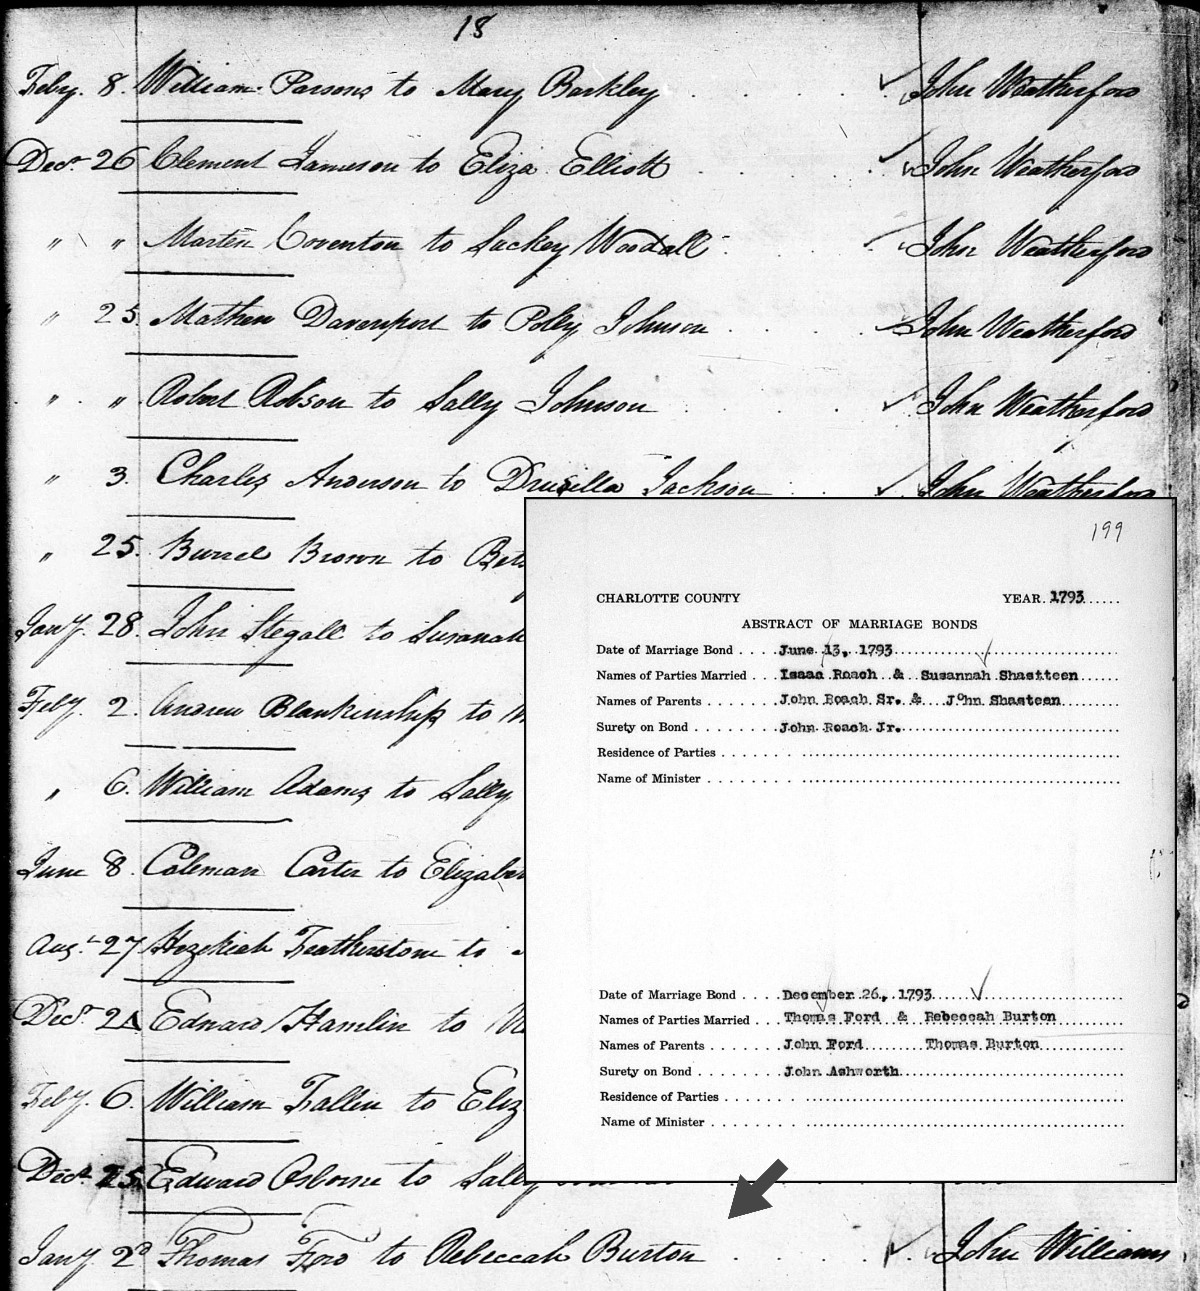 18
Feby. 8. William Parsons to Mary Barkley . . . . John Weatherford
Decr 26 Clement Jameson to Eliza Elliott . . . . John Weatherford
" " Marten Coventon to Lackey Woodall . . John Weatherford
" 25. Mathew Davenport to Polly Johnson . . . . John Weatherford
" " Robert Robson to Sally Johnson . . . . John Weatherford
" 3. Charles Anderson to Drusilla Jackson . . John Weatherford
" 25. Burrel Brown to Bets
Jany. 28. John Stegall to Susanah
Feby. 2. Andrew Blankinship to
" 6. William Adams to Sally
June 8. Coleman Carter to Elizabe
Augt 27 Hezekiah Featherstone to
Decr 24 Edward Hamlin to
Feby. 6. William Fallen to Eliz
Decr 25. Edward Osborne to Sally
Jany. 2d Thomas Ford to Rebeccah Burton . . . . John Williams
199
CHARLOTTE COUNTY YEAR. 1793
ABSTRACT OF MARRIAGE BONDS
Date of Marriage Bond . . . . June 13, 1793
Names of Parties Married . . . Isaac Roach & Susannah Shastteen
Names of Parents . . . . . . . John Roach Sr. & John Shasteen
Surety on Bond . . . . . . . . John Roach Jr.
Residence of Parties
Name of Minister
Date of Marriage Bond . . . . December 26, 1793
Names of Parties Married . . . Thomas Ford & Rebeccah Burton
Names of Parents . . . . . . . John Ford Thomas Burton
Surety on Bond . . . . . . . . John Ashworth
Residence of Parties
Name of Minister